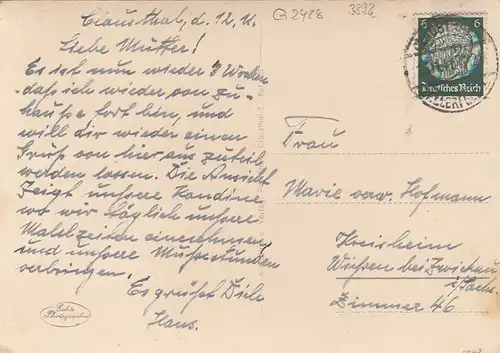 Clausthal, d. 12. V.
Liebe Mutter!
Es ist nun wieder 3 Wochen
daß ich wieder von zu-
hause fort bin, und
will dir wieder einen
Gruß von hier aus zuteil
werden lassen. Die Ansicht
zeigt unsere Kandine
wo wir täglich unsere
Mahlzeiten einnehmen
und unsere Mußestunden
verbringen.
Es grüßt Dich
Hans.
Echte
Photographie
Clausthal 2.
2428
3392
6 6
Deutsches Reich
Frau
Marie verw. Hofmann
Kreisheim
Wiesen bei Zwickau
i/Sachs.
Zimmer 46